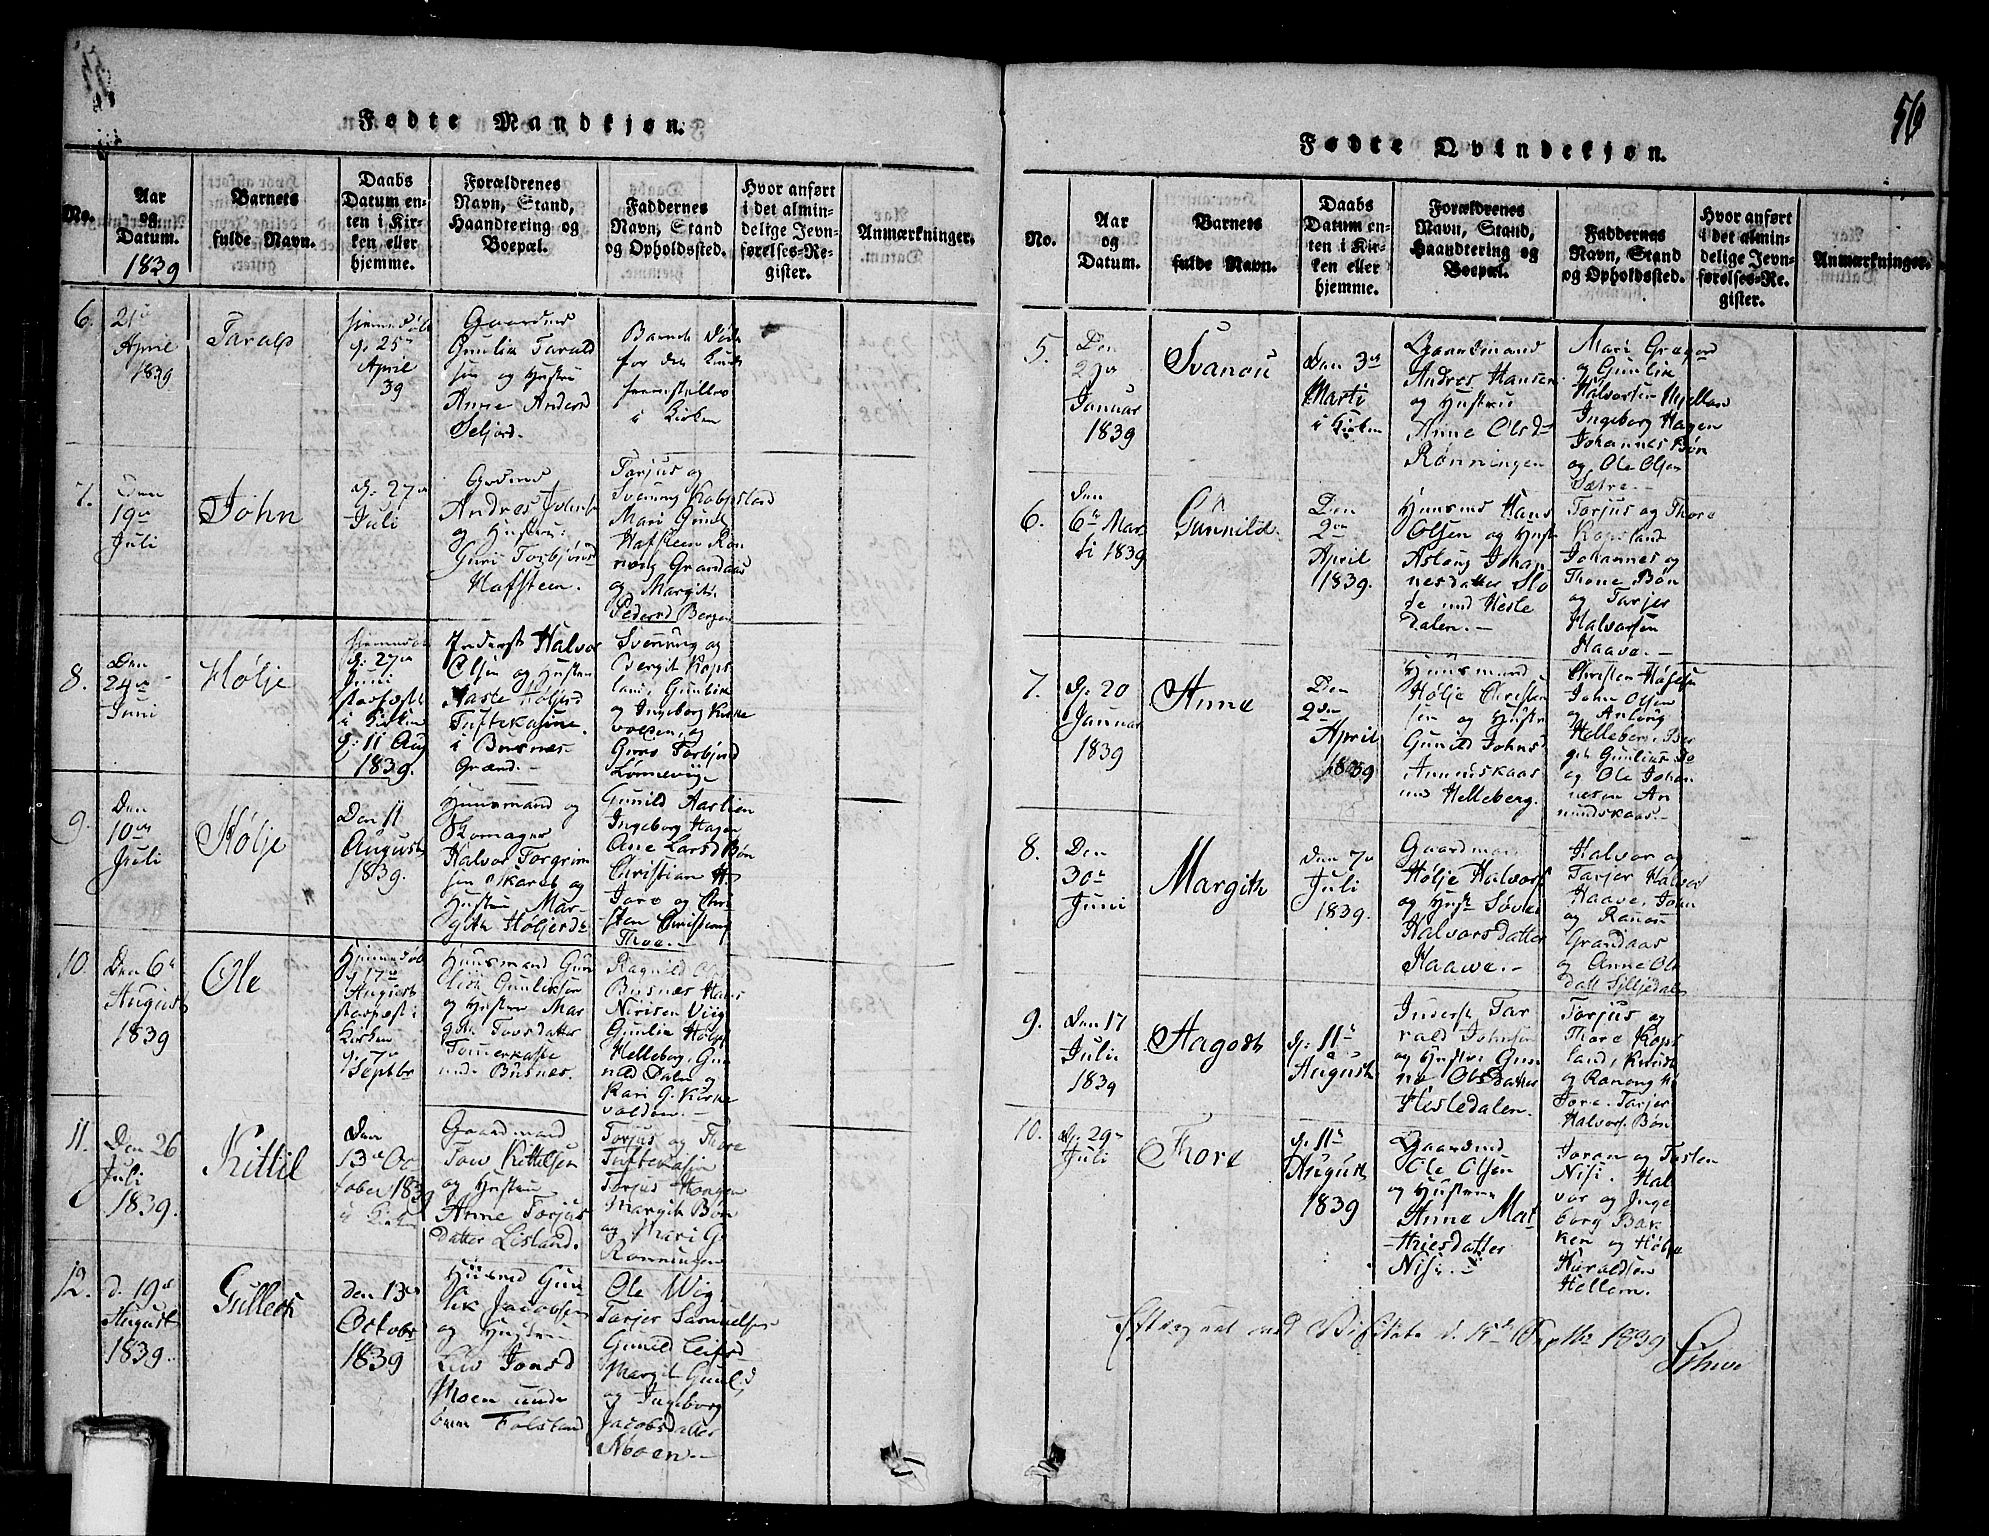 56
Fødte Mandkjøn.
No.
Aar
og
Datum.
1839
Barnets
fulde Navn.
Daabs
Datum en-
ten i Kir-
ken eller
hjemme.
Forældrenes
Navn, Stand,
Haandtering og
Boepæl.
Faddernes
Navn, Stand
og Opholdssted.
Hvor anført
i det almin-
delige Jevn-
førelses-Re-
gister.
Anmærkninger.
6.
21
April
1839
Tarald
d. 25
April
39
Gunlik Tarald
sen og Hustru
Anne Anders
Seljord.
for den
i Kirken
7.
Den
19
Juli
John
d. 27
Juli
Andres
og Hustru:
Guri Torbjørnsd
Hafsteen.
Torjus og
Svenung Kopsland
Mari Gund
Hafsteen Ron
noug Grandaas
og Margith
Pedersd Bergen
8.
Den
24
Juni
Hølje
d. 27
Juni
i Kirken
d. 11 Aug
1839.
Inderst Halvor
Olsen og Hustru
Aaste Høljesd
Tuftekasine
i Busnæs
Grænd.
Svenung og
Bergit Kops
land, Gunlik
og Ingeborg Kirke
volden, og
Torbjørnsd
9.
Den
10
Juli
Hølje
Den 11
August
1839.
Huusmand og
Skomager
Halvor Torgrim
sen Skaret og
Hustru Mar-
gith Høljesd
Gunild Aaslien
Ingeborg Hagen
Ane Larsd Bøn
Christian
Tore og Chri-
sten Christens
10.
Den 6
August
1839
Ole
d. 17
August
i
Kirken
d. 7
Septbr
Huusmand Gun
lik Gunliksen
og Hustru Mar
git Tovsdatter
Tømmeraasse
under Busnæs.
Ragnild
Busnæs Hans
Nirisen Viig
Gunlik Høljs
Helleberg, Gun
nild Dalen og
Kari G. Kirke
volden.
11.
Den 26
Juli
1839.
Kittil
Den
13 Oc
tober 1839
i Kirken
Gaardmand
Tov Kittelsen
og Hustru
Anne Torjus
datter Lisland.
Torjus og Thore
Tuftekasin
Torjus Haugen
Margith Bøn
og Mari G.
Rønningen
12.
d. 19
August
1839.
Gullech
den 13
October
1839
Huusmd Gun
lik Jacobsen
og Hustru
Liv Jonsd
Moen under
Folsland
Ole Wig
Tarjer Samuelsen
Gunild Leifsd
Margit Gunlsd
og Ingeborg
Jacobsdatter
Moen.
Fødte Qvindekjøn.
No.
Aar
og
Datum.
Barnets
fulde Navn.
Daabs
Datum en-
ten i Kir-
ken eller
hjemme.
Forældrenes
Navn, Stand,
Haandtering og
Boepæl.
Faddernes
Navn, Stand
og Opholdssted.
Hvor anført
i det almin-
delige Jevn-
førelses-Re-
gister.
Anmærkninger.
5.
Den
Januar
1839
Svanou
Den 3
Marti
i Kirken
Gaardmand
Andres Hansen
og Hustru
Anne Olsd
Rønningen
Mari Gregard
og Gunlik
Halvorsen Mjellan
Ingeborg Hagen
Johannes Bøn
og Ole Olsen
Sætre.
6.
Den
6 Mar
ti 1839
Gunnild.
Den
2
April
1839.
Huusmd Hans
Olsen og Hust
Aslaug Johan
nesdatter Slo
de und Hesle
dalen.
Torjus og Thore
Kopsland
Johannes og
Thone Bøn
og Tarjer
Halvorsen
Haave.
7.
d. 20
Januar
1839
Anne
Den
2
April
1839
Huusmand
Hølje Christen
sen og Hustru
Gunild Johnsd
Amundskaas
und Helleberg.
Christen Høljesen
John Olsen
og Anlaug
Helleberg, Ber
git Gunliks
og Ole Johan
nesen An
nundskaas.
8.
Den
30
Juni
Margith
Den 7
Juli
1839.
Gaardman
Hølje Halvors
og Hust Søvei
Halvorsdatter
Haawe.
Halvor og
Tarjer Halvor
Haave, John
og Ranou
Grandaas
og Anne Ols
datt Siljedalen
9.
Den 17
Juli
1839
Aagodt
d. 11
August
Inderst Tar
rald Johnsen
og Hustru Gun
ne Olsdatter
Hesledalen.
Torjus og
Thore Kops
land,
og Ranoug
Tore. Tarjer
Halvors. Bøn
10.
d. 29
Juli
Thore
d. 11
August
1839
Gaardmd
Ole Olsen
og Hustrue
Anne Mat
thiesdatter
Nisi.
Joran og Tosten
Nisi. Hal
vor og Inge
borg Bak
ken og Hølje
Haraldsen
Hellem.
Efterseet ved Visitats d. 15 Septbr 1839